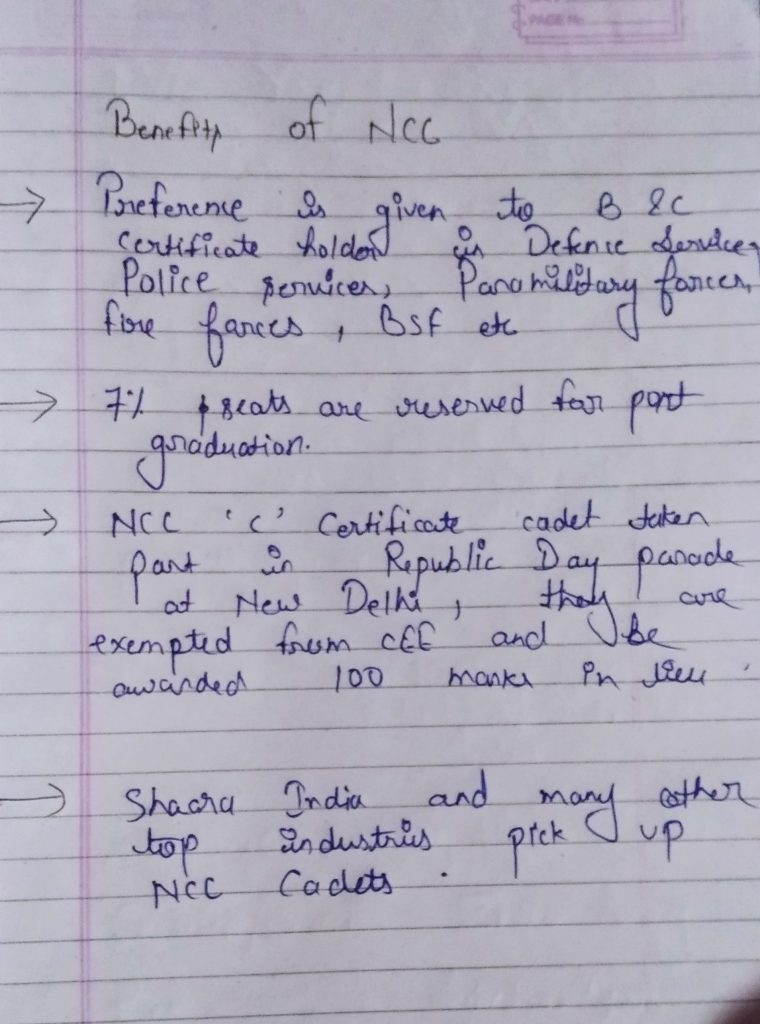 PAGE No.
Benefits of NCC
→ Preference is given to B & C
certificate holder in Defence Service,
Police services, Paramilitary forces,
fire forces, BSF etc
→ 7% seats are reserved for part
graduation.
→ NCC 'C' Certificate cadet taken
part in Republic Day parade
at New Delhi, they are
exempted from CEE and be
awarded 100 marks in lieu.
→ Shaara India and many other
top industris pick up
NCC Cadets.